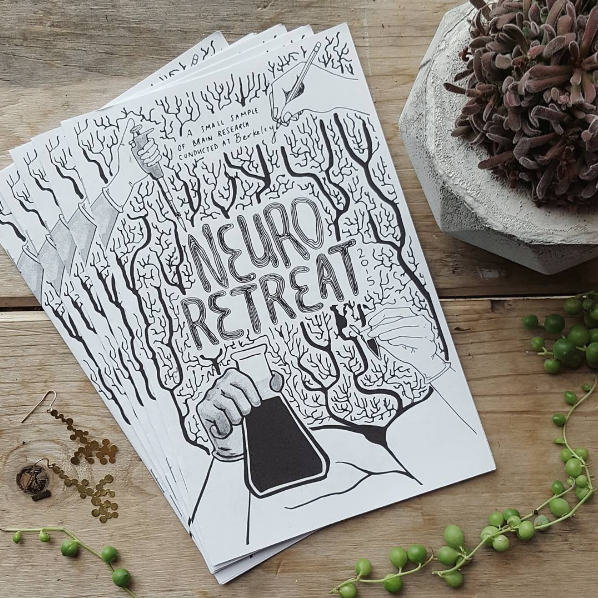 A SMALL SAMPLE
OF BRAIN RESEARCH
CONDUCTED AT Berkeley
NEURO
RETREAT